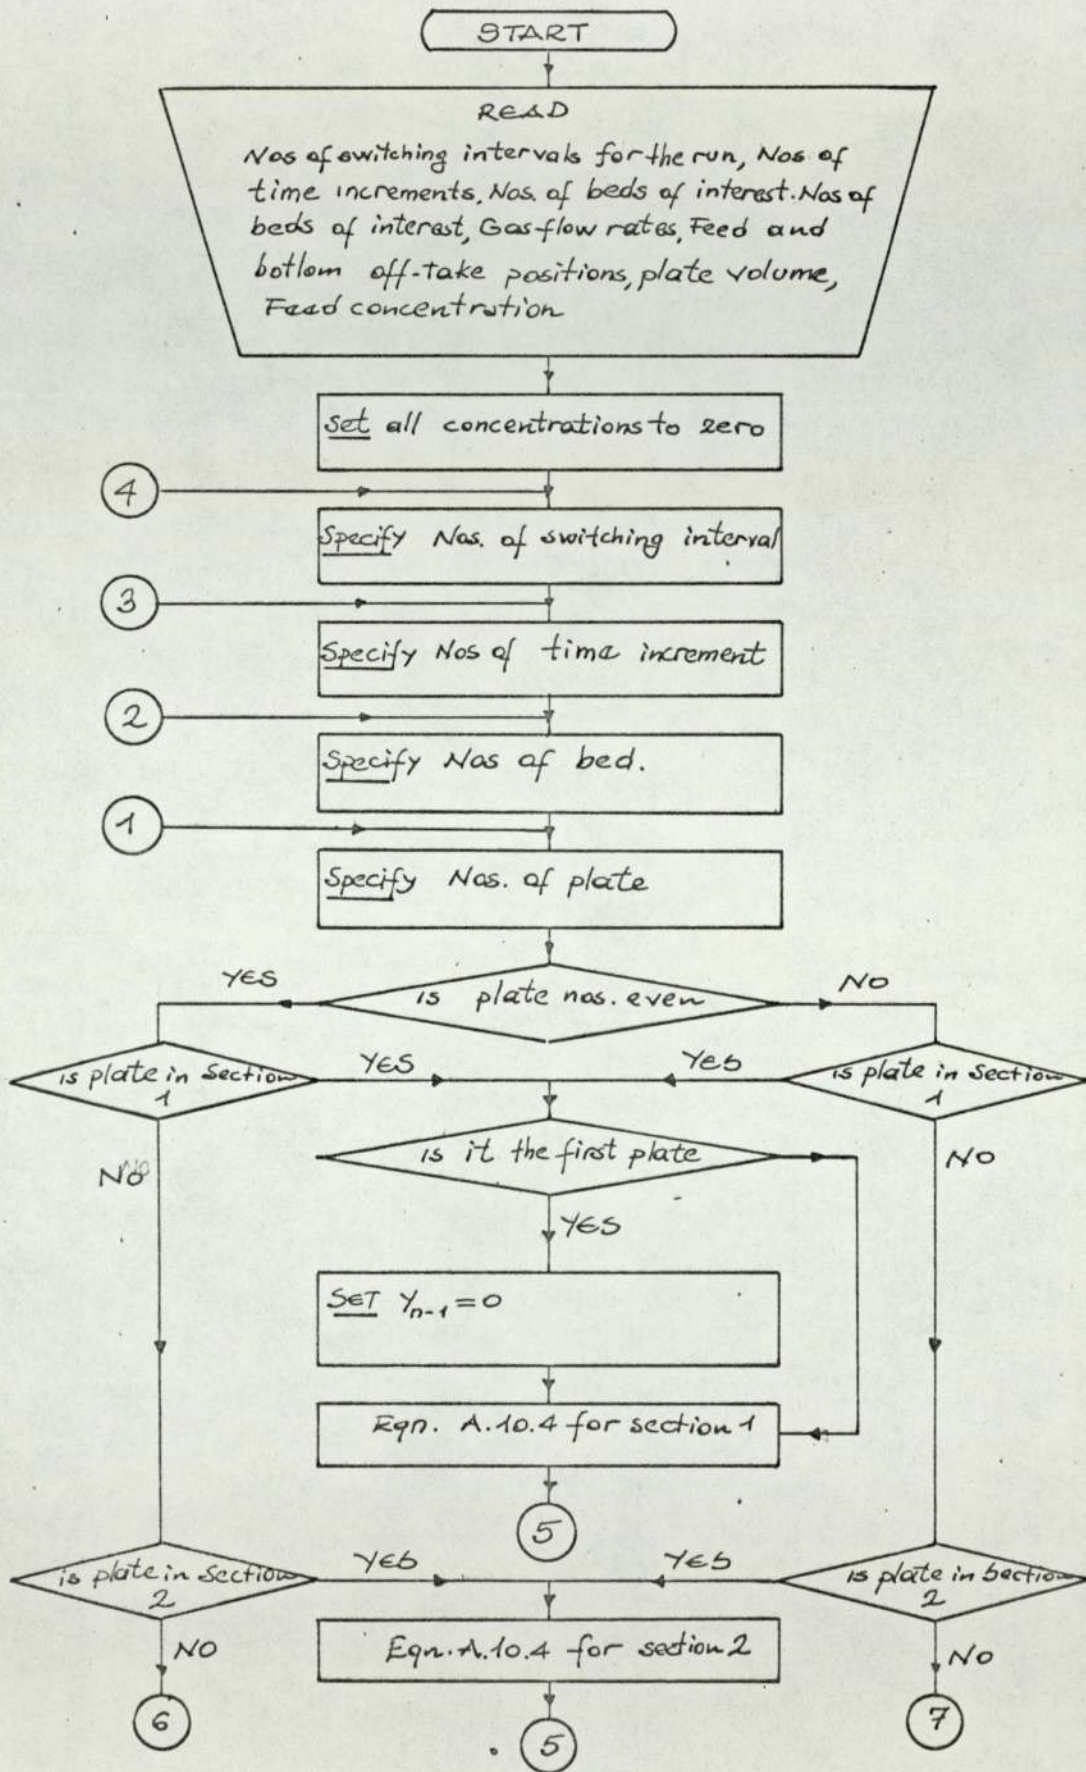 START
READ
Nos of switching intervals for the run, Nos of
time increments, Nos. of beds of interest. Nos of
beds of interest, Gas flow rates, Feed and
bottom off-take positions, plate volume,
Feed concentration
Set all concentrations to zero
4
Specify Nos. of switching interval
3
Specify Nos of time increment
2
Specify Nos of bed.
1
Specify Nos. of plate
YES
is plate nos. even
NO
is plate in section
1
YES
YES
is plate in section
1
is it the first plate
NO
NO
YES
SET Yn-1 = 0
Eqn. A.10.4 for section 1
5
is plate in section
2
YES
YES
is plate in section
2
NO
Eqn. A.10.4 for section 2
NO
6
5
7